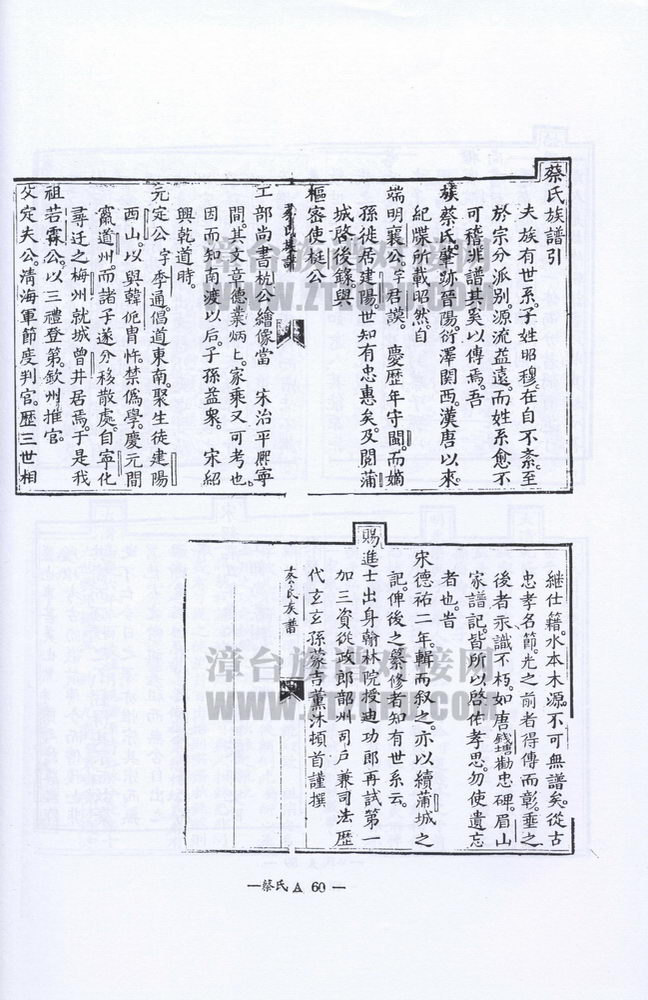 蔡氏族譜引
夫族有世系。子姓昭穆。在自不紊。至
於宗分派別。源流益遠。而姓系愈不
可稽。非譜其奚以傳焉。吾
族蔡氏。肇跡晉陽。衍澤關西。漢唐以來。
紀牒所載昭然。自
端明襄公。字君謨。慶歷年守閩。而嫡
孫徙居建陽。世知有忠惠矣。及閱蒲
城啓後錄。與
樞密使梃公
蔡氏族譜
工部尚書杭公繪像。當 宋治平熙寧
間。其文章德業炳炳。家乘又可考也。
因而知南渡以后。子孫益衆。 宋紹
興乾道時。
元定公字季通。倡道東南。聚生徒建陽
西山。以與韓侂冑忤。禁僞學。慶元間
竄道州。而諸子遂分移散處。自寧化
尋迁之梅州。就城曾井居焉。于是我
祖若霖公。以三禮登第。欽州推官。
父定夫公。清海軍節度判官。歷三世相
繼仕籍。水本木源。不可無譜矣。從古
忠孝名節。光之前者得傳而彰。垂之
後者永識不朽。如唐錢塘勸忠碑。眉山
家譜記。皆所以啓佑孝思。勿使遺忘
者也。旹
宋德祐二年。輯而叙之。亦以續蒲城之
記。俾後之纂修者知有世系云。
賜進士出身翰林院授迪功郎再試第一
加三資從政郎韶州司戶兼司法歷
代玄玄孫蒙吉薰沐頓首謹撰
蔡氏族譜
—蔡氏 A 60—
漳台族谱对接网
漳台族谱对接网